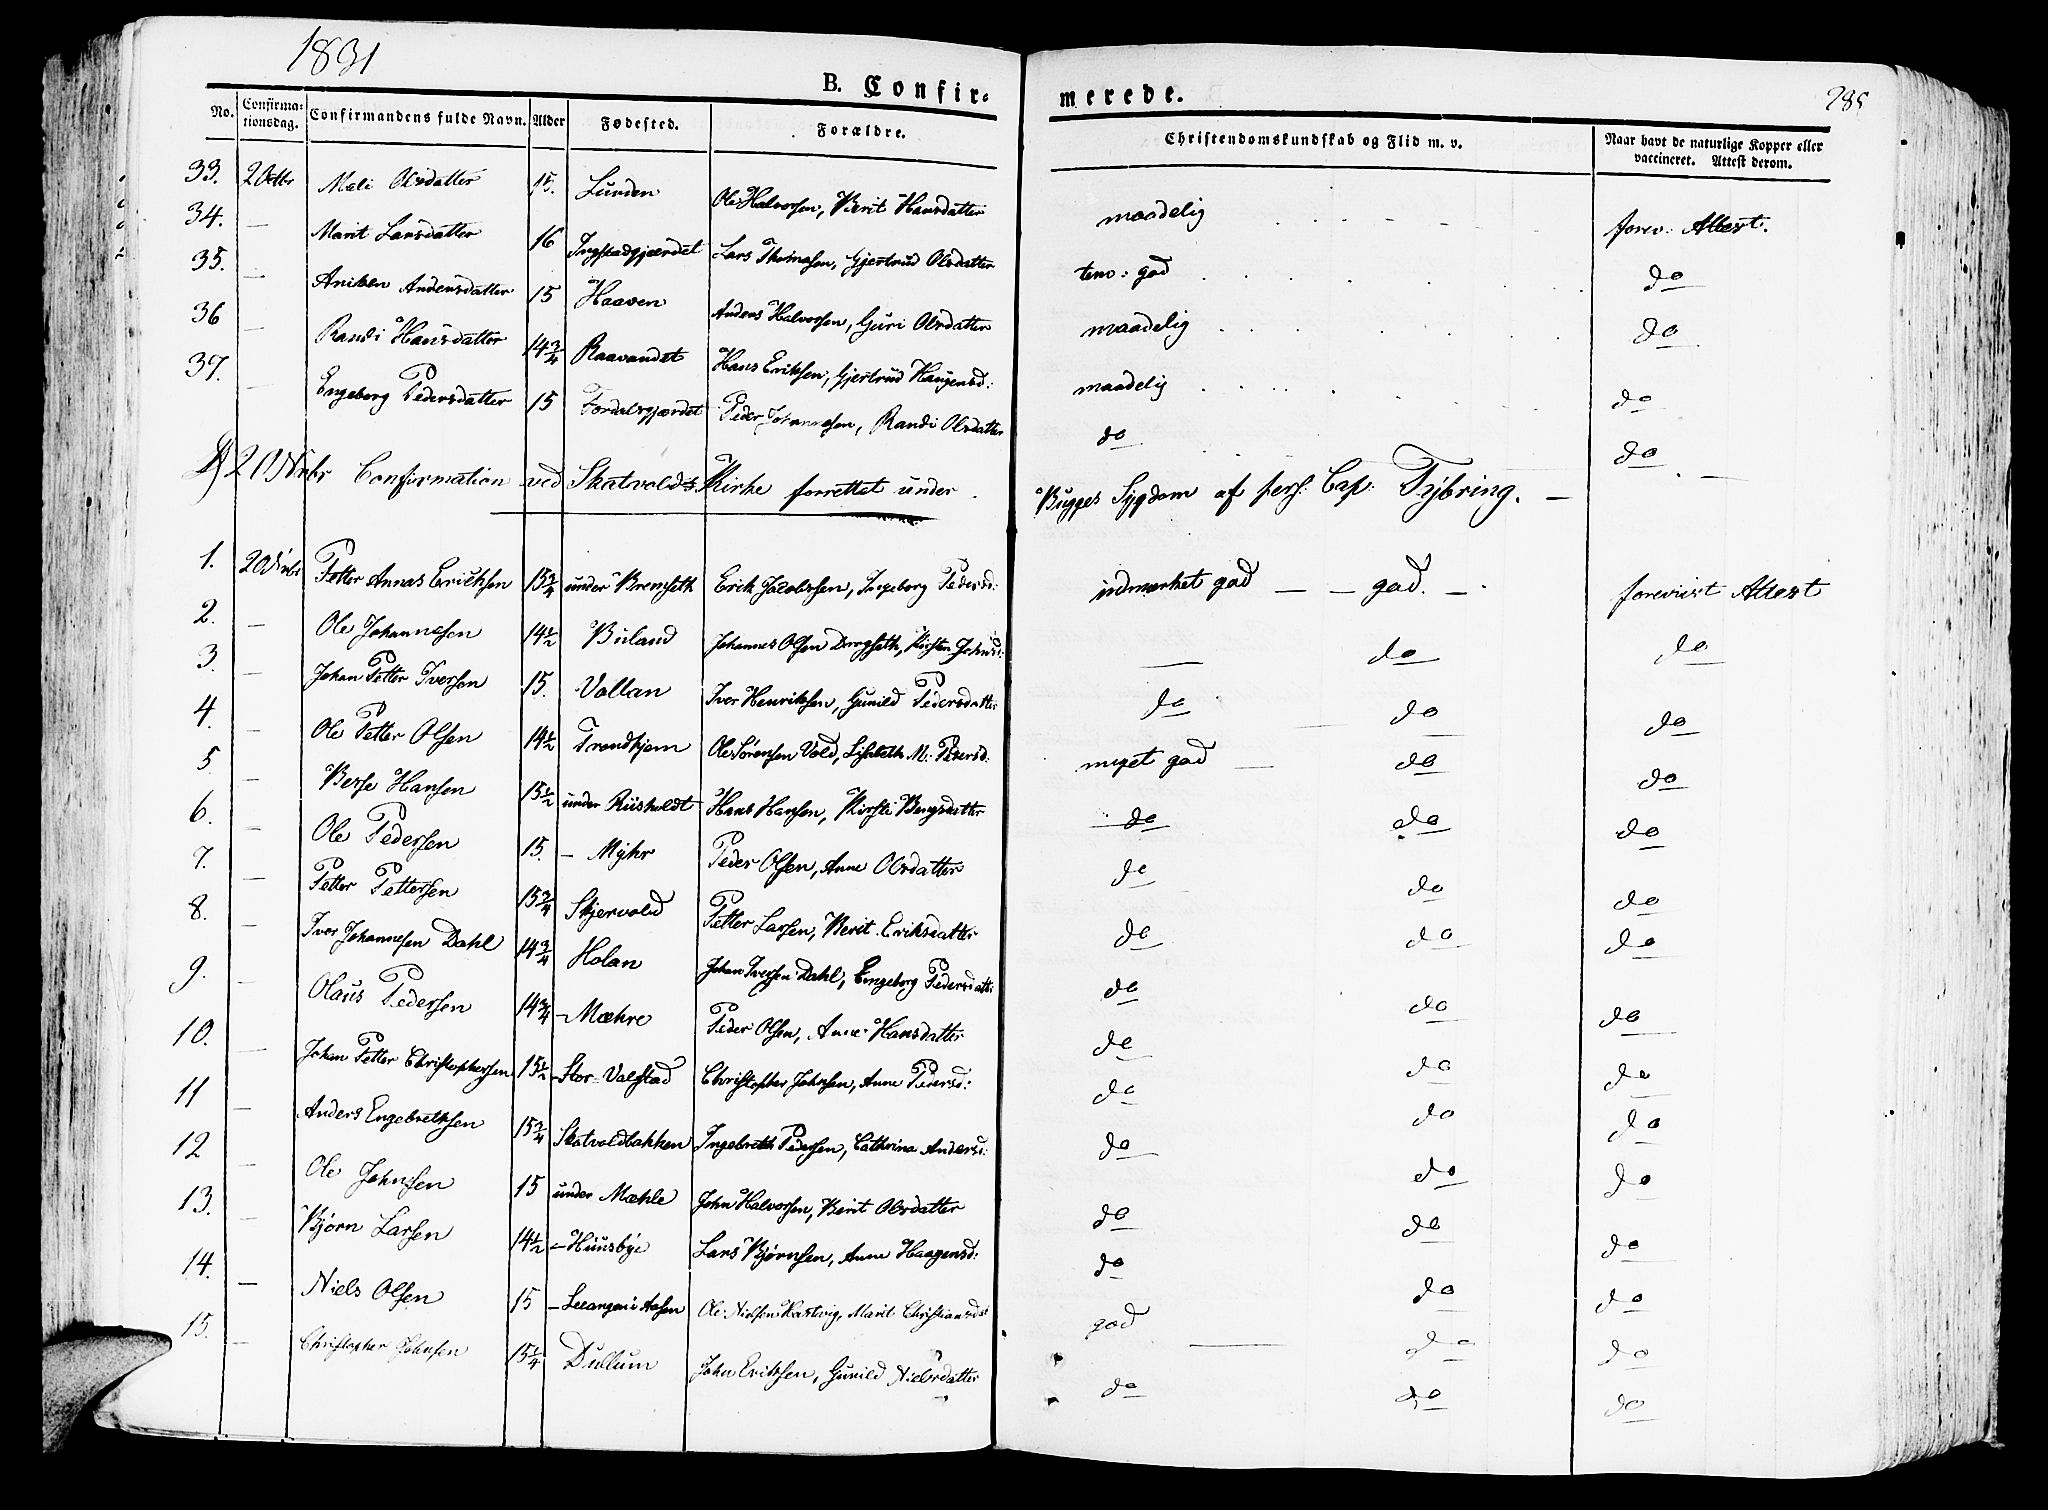 1831
B. Confir-
merede.
285
No. Confirmationsdag. Confirmandens fulde Navn. Alder Fødested. Forældre. Christendomskundskab og Flid m. v. Naar havt de naturlige Kopper eller vaccineret. Attest derom.
33. 2 Octbr Mali Olsdatter 15. Lunden Ole Halvorsen, Berit Hansdatter maadelig forev: Attest.
34. — Marit Larsdatter 16 Ingstadgjærdet Lars Thomasen, Gjertrud Olsdatter tem: god do
35. — Aniken Andersdatter 15 Haaven Anders Halvorsen, Guri Olsdatter maadelig do
36 — Randi Hansdatter 14 3/4 Raavandet Hans Eriksen, Gjertrud Haugensd: maadelig do
37. — Engeborg Pedersdatter 15 Fordalsgjærdet Peder Johannesen, Randi Olsdatter do do
Confirmation ved Skatvolds Kirke forrettet under Bugges Sygdom af pers: Cap: Tybring. —
1. Petter Annas Erichsen 15 3/4 under Bremseth Erik Jacobsen, Ingeborg Pedersd: udmærket god — — god. — foreviist Attest
2. — Ole Johannesen 14 1/2 Buland Johannes Olsen Dyrgseth, Kirsten Johnsd: — do do
3. — Johan Petter Iversen 15. Vollan Iver Henriksen, Gunild Pedersdatter do do do
4. — Ole Petter Olsen 14 1/2 Trondhjem Ole Sørensen Vold, Lisabeth M: Petersd: meget god — do do
5. — Berse Hansen 15 1/2 under Riisholdt Hans Hansen, Kirsti Bengsdatter do do do
6. — Ole Pedersen 15. — Myhr Peder Olsen, Anne Olsdatter do do do
7. — Petter Pettersen 15 3/4 Skjervold Petter Larsen, Berit Eriksdatter do do do
8. — Iver Johannesen Dahl 14 3/4 Holan Johan Iversen Dahl, Engeborg Pedersdatter do do do
9. — Olaus Pedersen 14 3/4 — Mæhre Peder Olsen, Anne Hansdatter do do do
10. — Johan Petter Christophersen 15 1/2 — Stor-Valstad Christopher Johnsen, Anne Pedersd: do do do
11 — Anders Engebrethsen 15 3/4 Skatvoldbakken Ingebreth Pedersen, Cathrina Andersd: do do do
12 — Ole Johnsen 15 under Mæhle John Halvorsen, Berit Olsdatter do do do
13. — Bjørn Larsen 14 1/2 — Huusbye Lars Bjørnsen, Anne Haagensd: do do do
14. — Niels Olsen 15 — Leeangen i Aasen Ole Nielsen Hartvig, Marit Christiansdat god — do do
15. — Christopher Johnsen 15 1/4 Dullum John Eriksen, Gunild Nielsdatter do do do